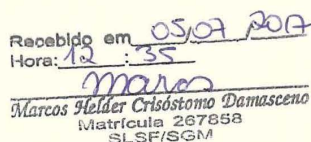 Recebido em 05/07/2017
Hora: 12 : 35
Marcos
Marcos Helder Crisóstomo Damasceno
Matrícula 267858
SLSF/SGM